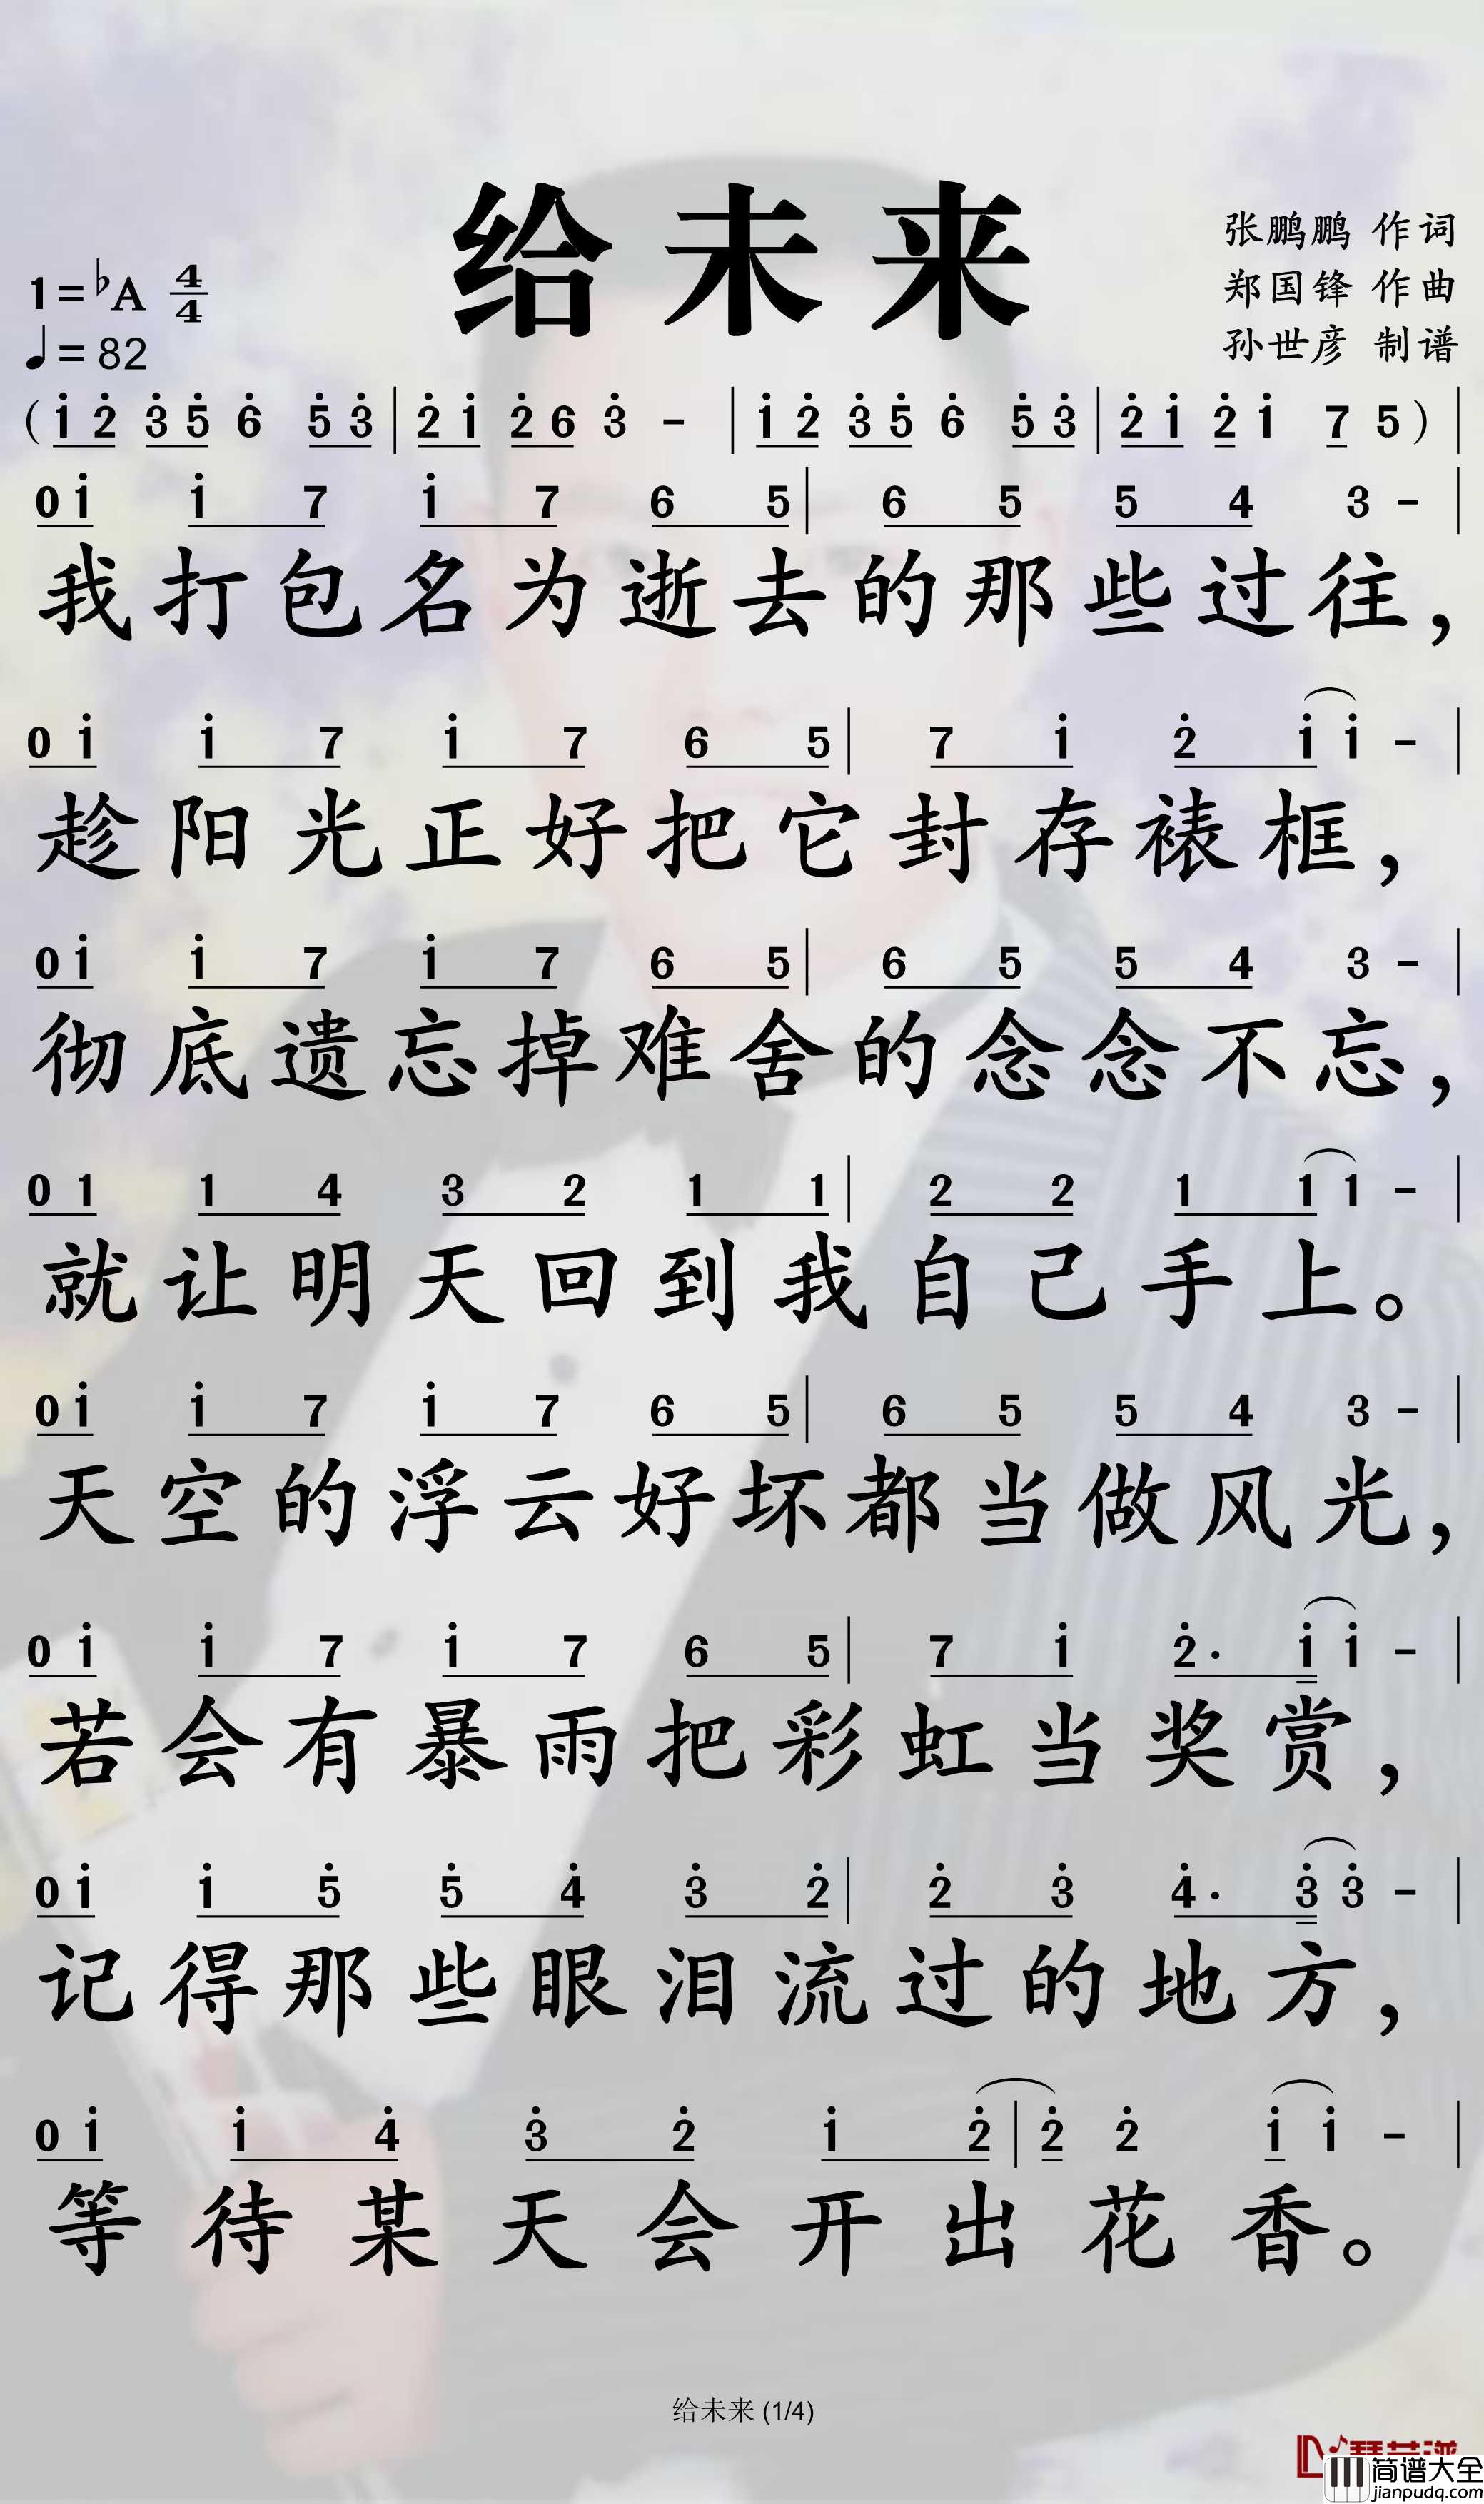 给未来
张鹏鹏 作词
1=♭A 4/4
郑国锋 作曲
♩=82
孙世彦 制谱
( i̲ 2̲̇ 3̲̇ 5̲̇ 6̇ 5̲̇ 3̲̇ | 2̲̇ i̲ 2̲̇ 6̲ 3̇ - | i̲ 2̲̇ 3̲̇ 5̲̇ 6̇ 5̲̇ 3̲̇ | 2̲̇ i̲ 2̲̇ i 7̲ 5 ) |
0 i i 7 i 7 6 5 | 6 5 5 4 3 - |
我打包名为逝去的那些过往，
0 i i 7 i 7 6 5 | 7 i 2̇ i i - |
趁阳光正好把它封存裱框，
0 i i 7 i 7 6 5 | 6 5 5 4 3 - |
彻底遗忘掉难舍的念念不忘，
0 1 1 4 3 2 1 1 | 2 2 1 1 1 - |
就让明天回到我自己手上。
0 i i 7 i 7 6 5 | 6 5 5 4 3 - |
天空的浮云好坏都当做风光，
0 i i 7 i 7 6 5 | 7 i 2̇· i i - |
若会有暴雨把彩虹当奖赏，
0 i i 5̇ 5̇ 4̇ 3̇ 2̇ | 2̇ 3̇ 4̇· 3̇ 3̇ - |
记得那些眼泪流过的地方，
0 i i 4̇ 3̇ 2̇ i 2̇ | 2̇ 2̇ i i - |
等待某天会开出花香。
给未来 (1/4)
简谱大全
jianpudq.com